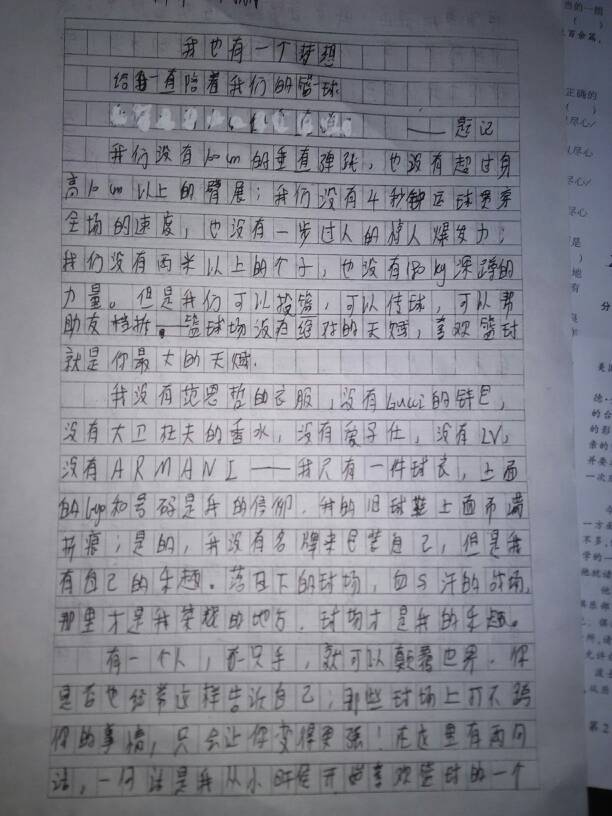 我也有一个梦想
给一直陪着我们的篮球
——题记
我们没有10cm的垂直弹跳，也没有超过身
高10cm以上的臂展；我们没有4秒钟运球贯穿
全场的速度，也没有一步过人的惊人爆发力；
我们没有两米以上的个子，也没有180kg深蹲的
力量。但是我们可以投篮，可以传球，可以帮
助友挡拆。篮球场没有绝对的天赋，喜欢篮球
就是你最大的天赋.
我没有范思哲的衣服，没有Gucci的钱包，
没有大卫杜夫的香水，没有爱马仕，没有LV，
没有ARMANI——我只有一件球衣，上面
的logo和号码是我的信仰.我的旧球鞋上面布满
折痕；是的，我没有名牌来包装自己，但是我
有自己的乐趣。落日下的球场，血与汗的战场，
那里才是我荣耀的地方.球场才是我的乐趣。
有一个人，一只手，就可以颠覆世界.你
是否也经常这样告诉自己：那些球场上打不踌
你的事情，只会让你变得更强！在这里有两句
话，一句话是我从小时候开始喜欢篮球的一个
当的一组
正确的
尽心
尽心
尽心
是
地
有
分
的影
并要
一次
今
一方
不多
学的一
他就
他
俱乐部
所
允许
第2